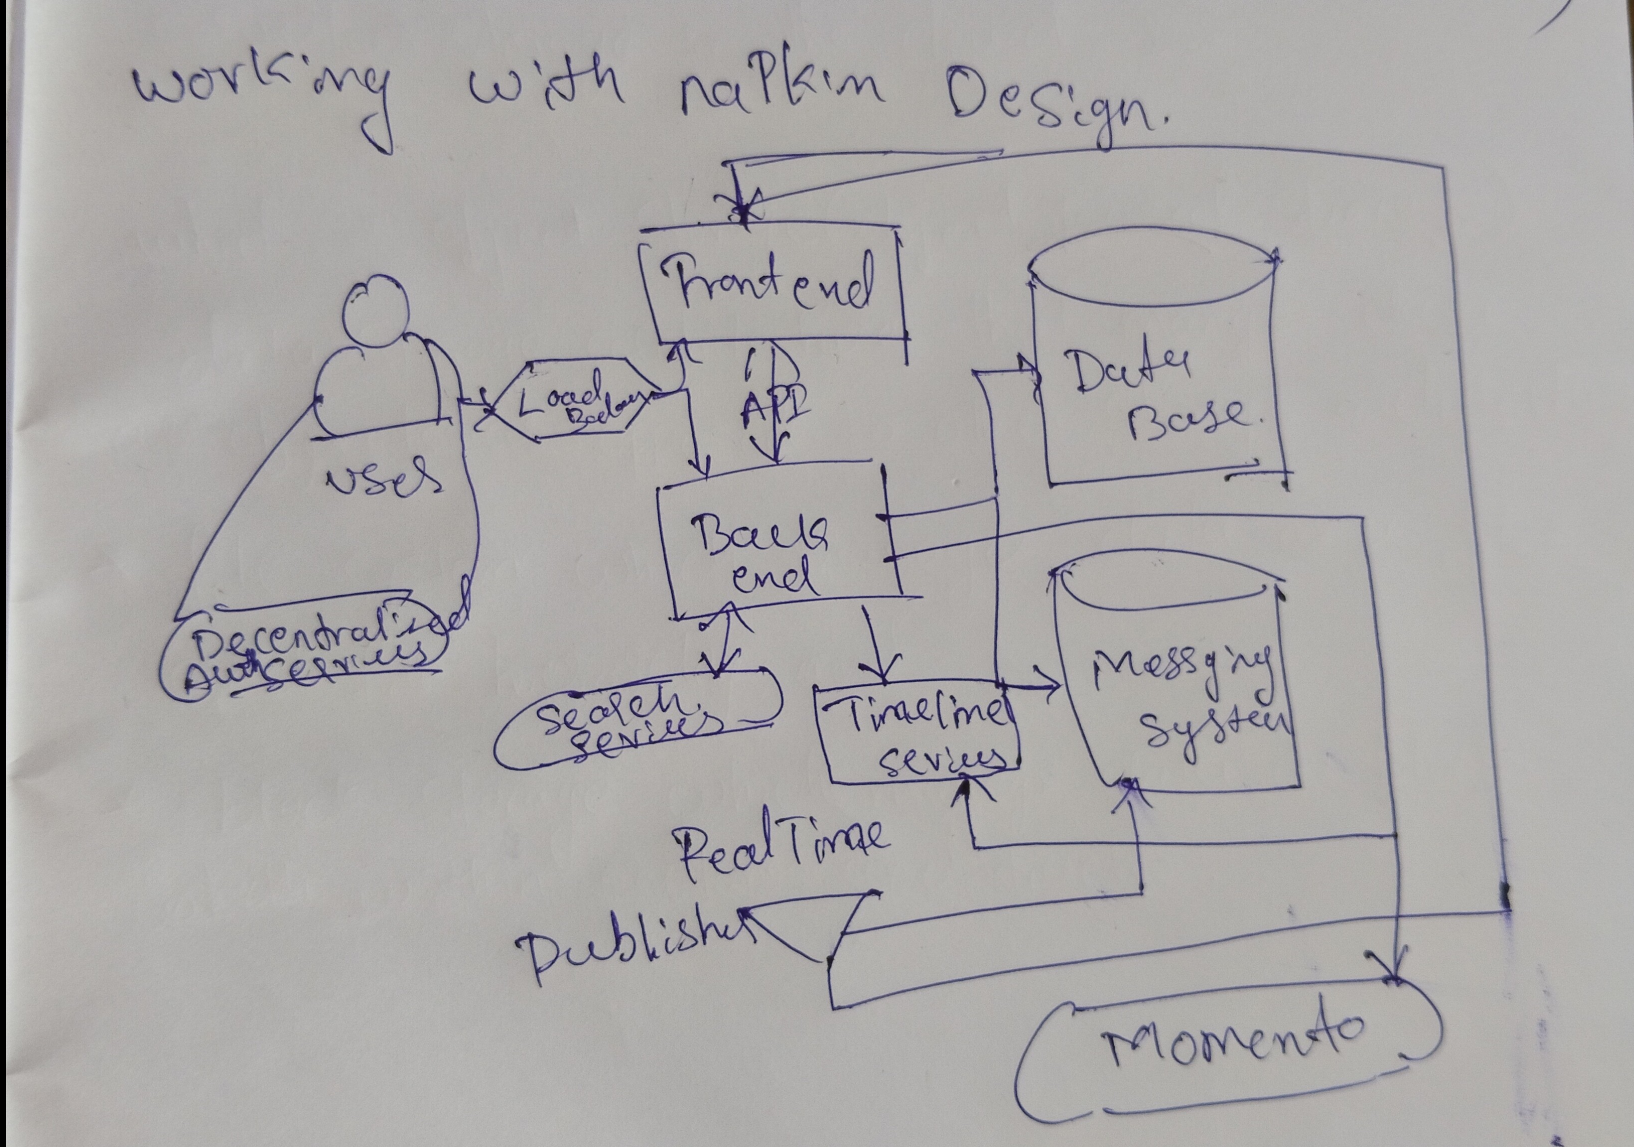 working with naPkin Design.
Frontend
Data
Base.
Load
API
Back
end
Decentralized
Auth Services
Search
Timeline
Messging
System
RealTime
Publisher
Momento